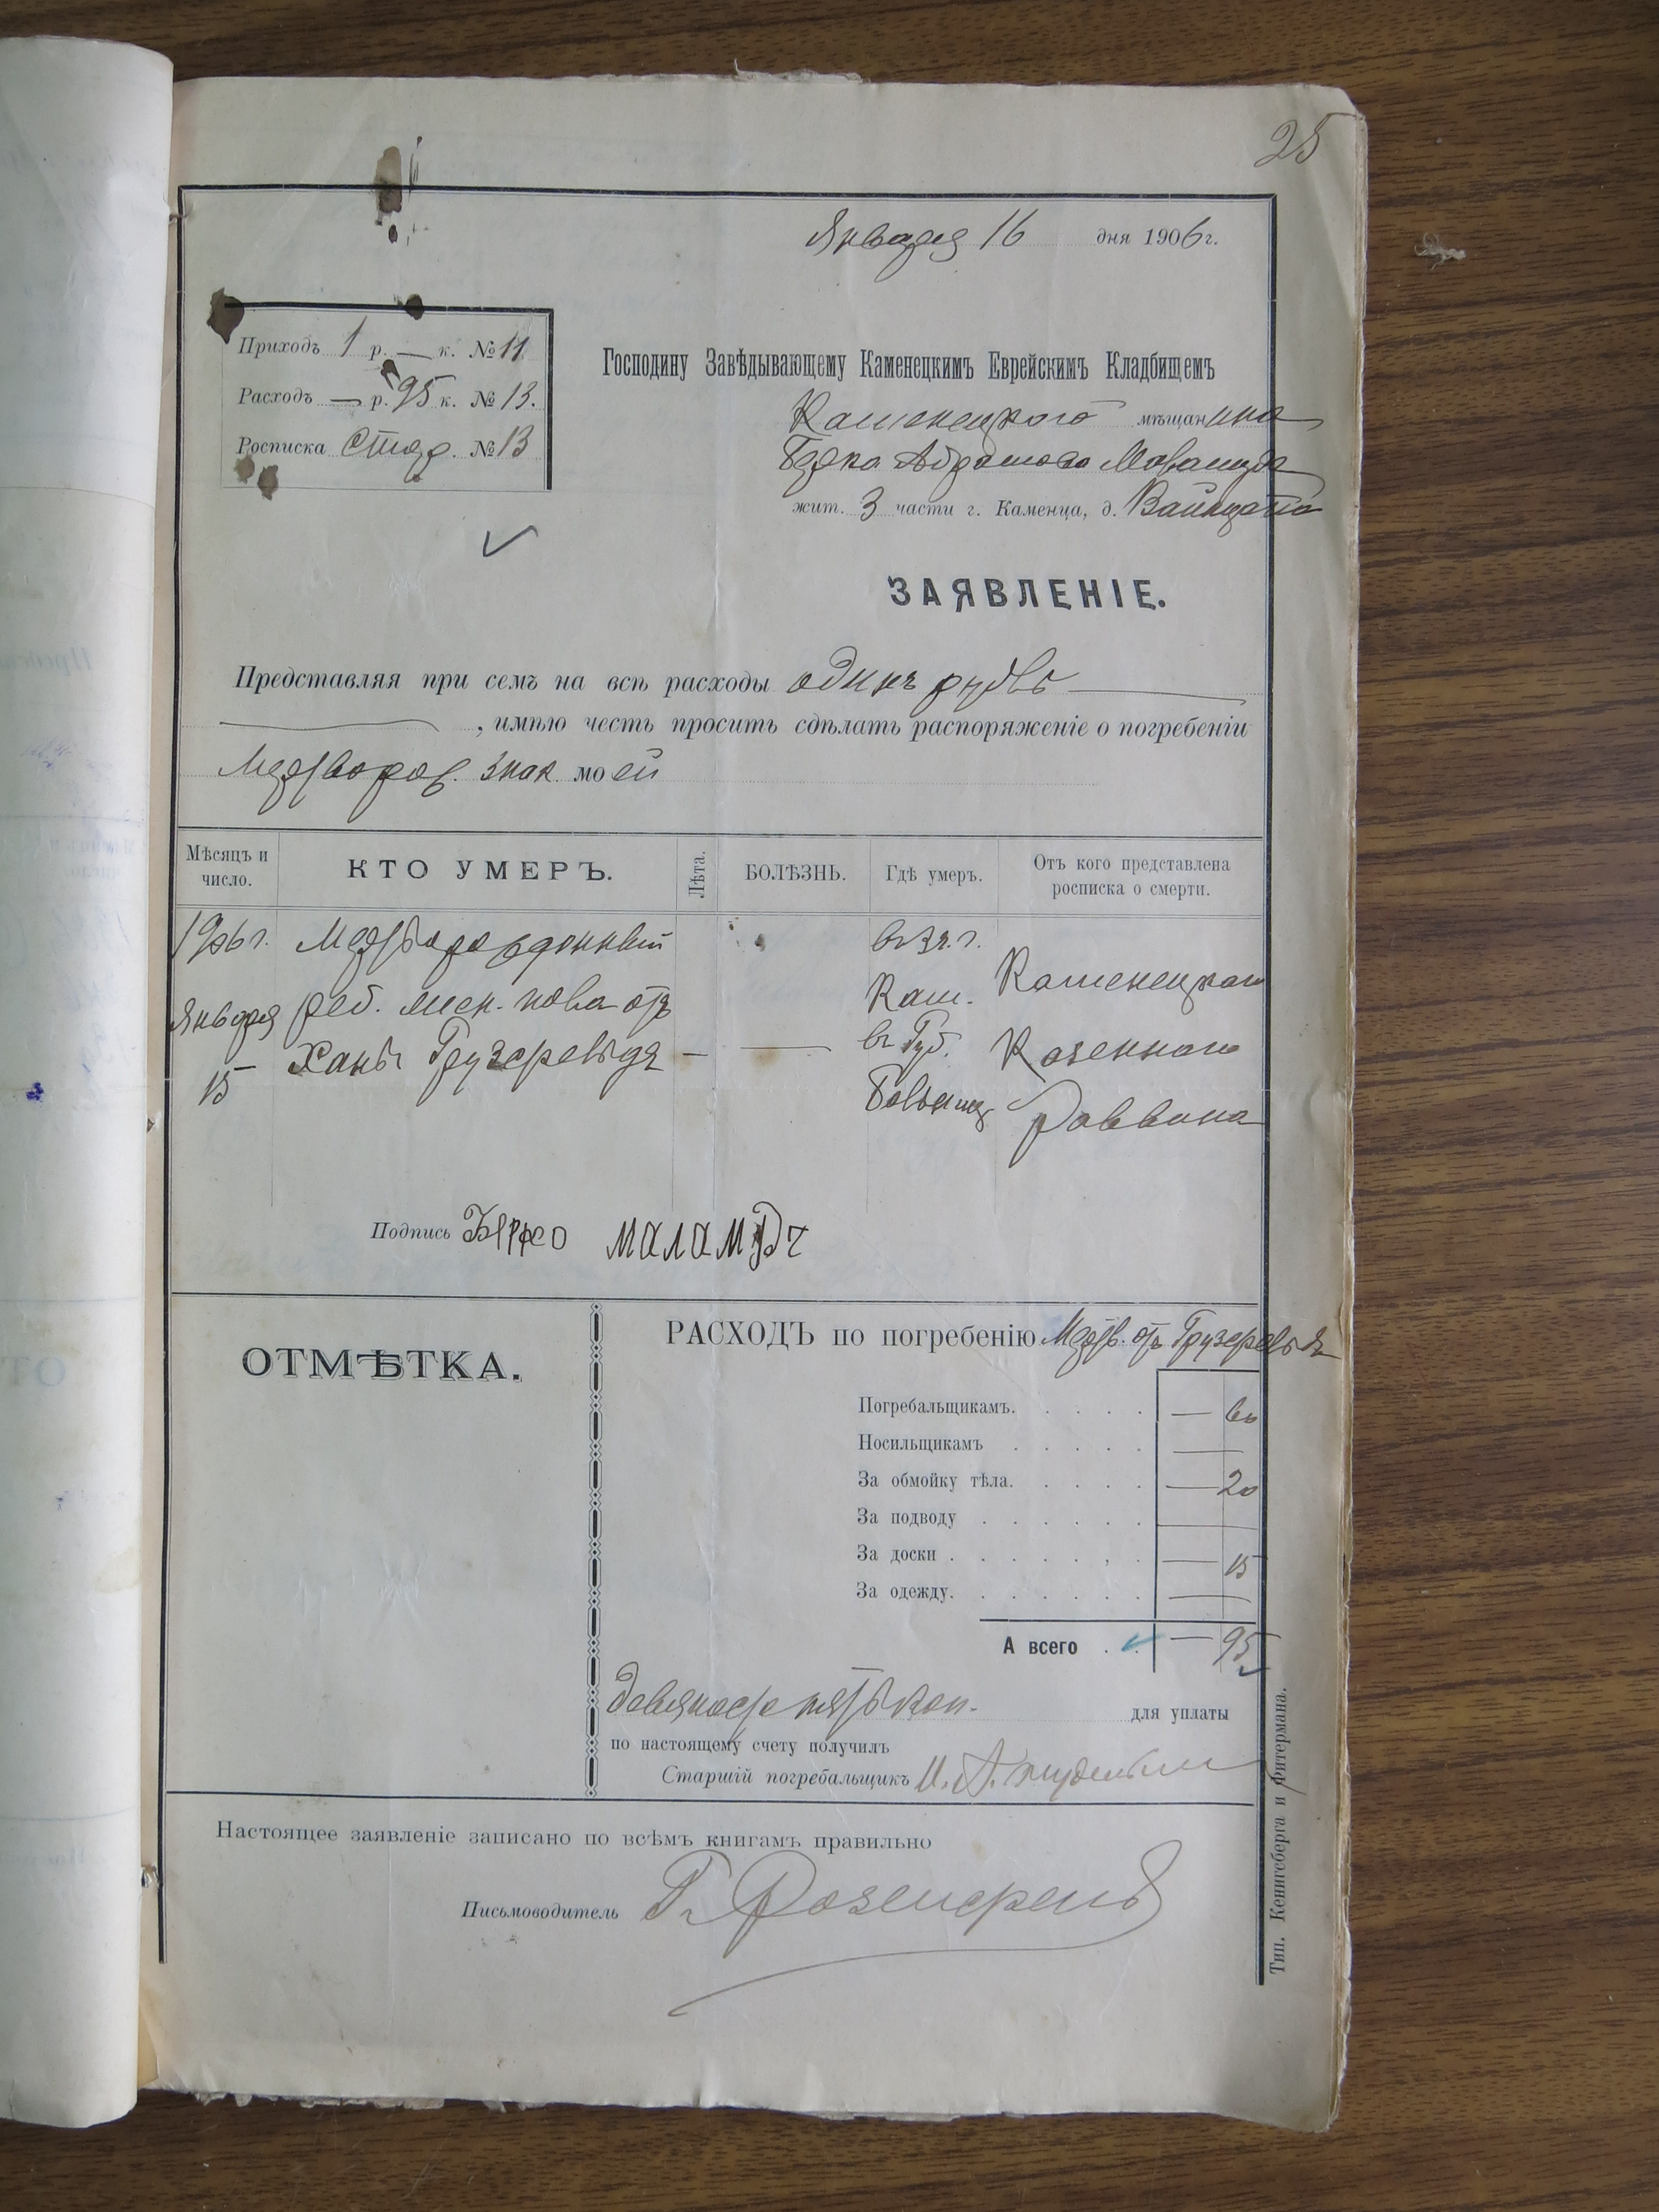 25
Января 16 дня 1906 г.
Приходъ 1 р. — к. № 11
Расходъ — р. 95 к. № 13.
Росписка Стар. № 13
Господину Завѣдывающему Каменецкимъ Еврейскимъ Кладбищемъ
Каменецкого мѣщанина
Берка Абрамова
жит. 3 части г. Каменца, д.
ЗАЯВЛЕНІЕ.
Представляя при семъ на всѣ расходы одинъ рубль —
— , имѣю честь просить сдѣлать распоряженіе о погребеніи
Мертворож. знак. моей
Мѣсяцъ и число. КТО УМЕРЪ. Лѣта. БОЛѢЗНЬ. Гдѣ умеръ. Отъ кого представлена росписка о смерти.
1906 г. Мертворожденный
Января реб. жен. пола отъ
15 Ханы — —
въ 3 ч. г.
Кам.
въ Губ.
Больниц
Каменецкаго
Казеннаго
Раввина
Подпись Берко Маламудъ
ОТМѢТКА.
РАСХОДЪ по погребенію Мертв. отъ
Погребальщикамъ. — 60
Носильщикамъ —
За обмойку тѣла. — 20
За подводу —
За доски — 15
За одежду. —
А всего — 95
девяносто пять коп. для уплаты
по настоящему счету получилъ
Старшій погребальщикъ
Настоящее заявленіе записано по всѣмъ книгамъ правильно
Письмоводитель
Тип. Кенигсберга и Фитермана.